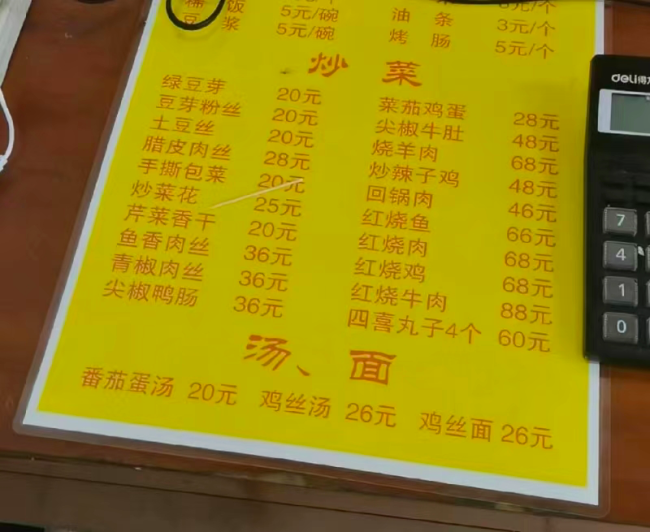 饭 5元/碗
豆浆 5元/碗 油条 3元/个
烤肠 5元/个
炒菜
绿豆芽 20元 菜茄鸡蛋 28元
豆芽粉丝 20元 尖椒牛肚 48元
土豆丝 20元 烧羊肉 68元
腊皮肉丝 28元 炒辣子鸡 48元
手撕包菜 20元 回锅肉 46元
炒菜花 25元 红烧鱼 66元
芹菜香干 20元 红烧肉 68元
鱼香肉丝 36元 红烧鸡 68元
青椒肉丝 36元 红烧牛肉 88元
尖椒鸭肠 36元 四喜丸子4个 60元
汤、面
番茄蛋汤 20元 鸡丝汤 26元 鸡丝面 26元
deli得力
7
4
1
0